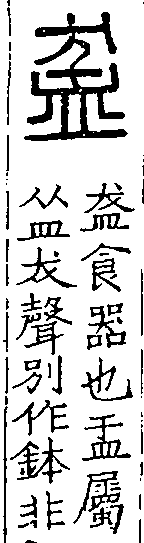 盋
盋食器也盂屬
从皿犮聲別作鉢非